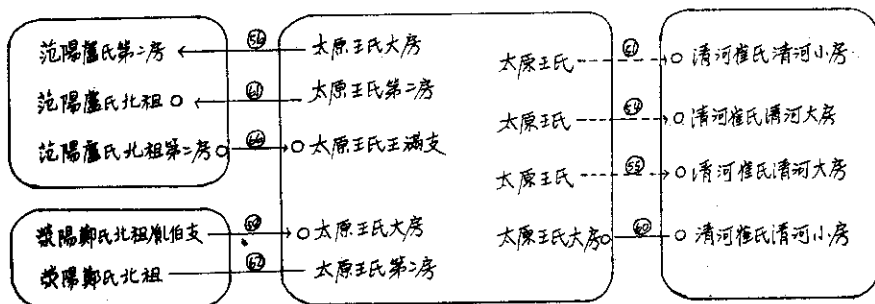 范陽盧氏第二房 56 太原王氏大房
范陽盧氏北祖 61 太原王氏第二房
范陽盧氏北祖第二房 66 太原王氏王滿支
滎陽鄭氏北祖胤伯支 太原王氏大房
滎陽鄭氏北祖 62 太原王氏第二房
太原王氏 61 清河崔氏清河小房
太原王氏 54 清河崔氏清河大房
太原王氏 55 清河崔氏清河大房
太原王氏大房 60 清河崔氏清河小房